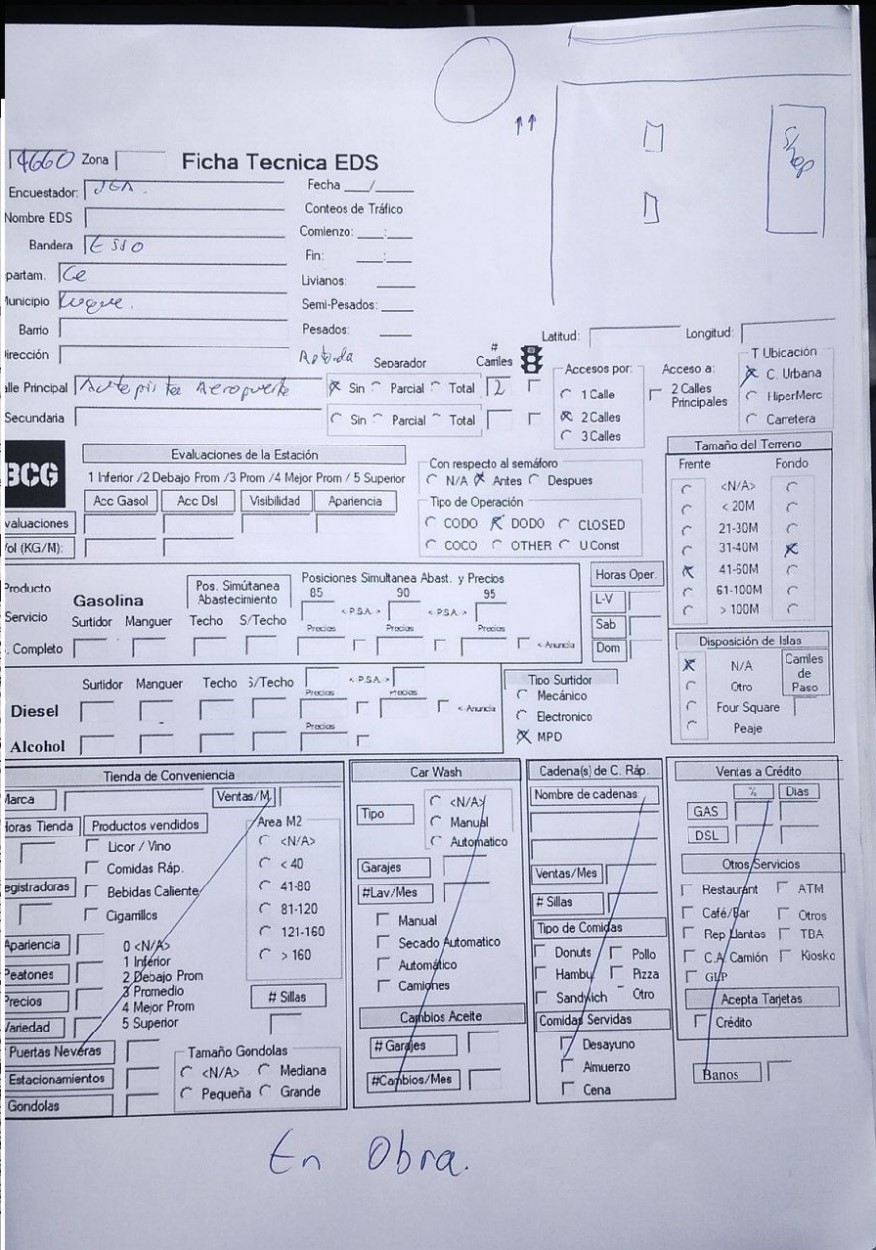 Shop
14660 Zona Ficha Tecnica EDS
Encuestador: JGA. Fecha ___/____
Nombre EDS Conteos de Tráfico
Bandera Esso Comienzo: ___:___
Fin: ___:___
partam. Ce Livianos: ____
Municipio Luque. Semi-Pesados: ____
Barrio Pesados: ____
Latitud: Longitud:
irección # Carriles
Separador
alle Principal Autopista Aeropuerto Sin Parcial Total 2
Secundaria Sin Parcial Total
Accesos por:
1 Calle
2 Calles
3 Calles
Acceso a:
2 Calles Principales
T Ubicación
C. Urbana
HiperMerc
Carretera
BCG
Evaluaciones de la Estación
1 Inferior /2 Debajo From /3 Prom /4 Mejor Prom / 5 Superior
Acc Gasol Acc Dsl Visibilidad Apariencia
valuaciones
Vol (KG/M):
Con respecto al semáforo
N/A Antes Despues
Tipo de Operación
CODO DODO CLOSED
COCO OTHER U Const
Tamaño del Terreno
Frente Fondo
<N/A>
< 20M
21-30M
31-40M
41-60M
61-100M
> 100M
Producto Gasolina Pos. Simútanea Abastecimiento Posiciones Simultanea Abast. y Precios
85 < P.S.A. > 90 < P.S.A. > 95
Servicio Surtidor Manguer Techo S/Techo Precios Precios Precios
. Completo < Anuncia
Horas Oper.
L-V
Sab
Dom
Disposición de Islas
N/A
Otro
Four Square
Peaje
Carriles de Paso
Surtidor Manguer Techo S/Techo < P.S.A.>
Precios Precios
Diesel < Anuncia
Precios
Alcohol
Tipo Surtidor
Mecánico
Electronico
MPD
Tienda de Conveniencia
Marca Ventas/M.
Horas Tienda Productos vendidos
Licor / Vino
Comidas Ráp.
egistradoras Bebidas Caliente
Cigarrillos
Area M2
<N/A>
< 40
41-80
81-120
121-160
> 160
Apariencia 0 <N/A>
1 Inferior
Peatones 2 Debajo Prom
Precios 3 Promedio
4 Mejor Prom # Sillas
Variedad 5 Superior
Puertas Neveras
Estacionamientos
Gondolas
Tamaño Gondolas
<N/A> Mediana
Pequeña Grande
Car Wash
Tipo
<N/A>
Manual
Automatico
Garajes
#Lav/Mes
Manual
Secado Automatico
Automático
Camiones
Cambios Aceite
# Garajes
#Cambios/Mes
Cadena(s) de C. Ráp.
Nombre de cadenas
Ventas/Mes
# Sillas
Tipo de Comidas
Donuts Pollo
Hambu. Pizza
Sandwich Otro
Comidas Servidas
Desayuno
Almuerzo
Cena
Ventas a Crédito
% Dias
GAS
DSL
Otros Servicios
Restaurant ATM
Café/Bar Otros
Rep Llantas TBA
C.A. Camión Kiosko
GLP
Acepta Tarjetas
Crédito
Banos
En Obra.